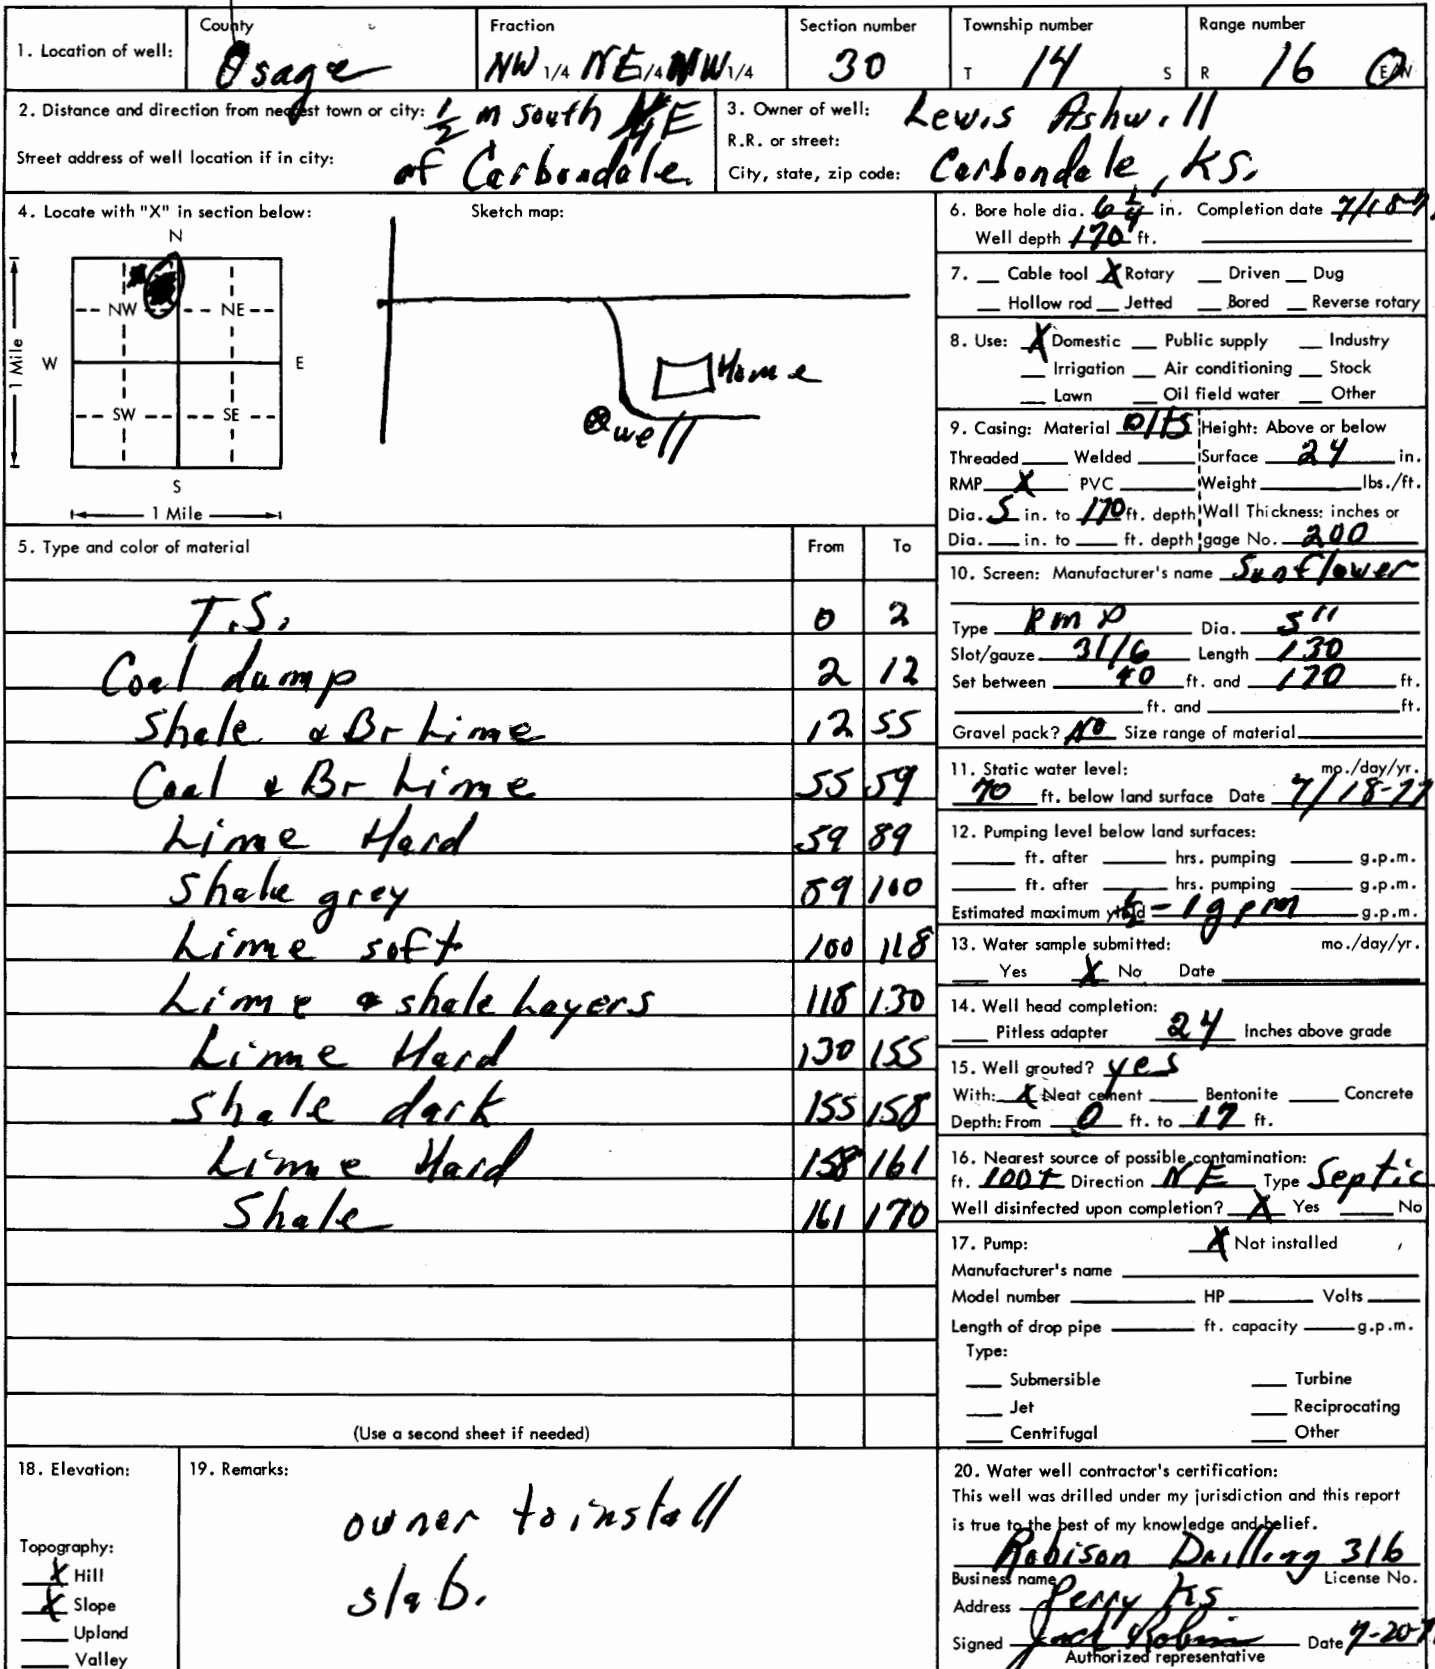 1. Location of well: County Osage Fraction NW 1/4 NE 1/4 NW 1/4 Section number 30 Township number T 14 S Range number R 16 E/W
2. Distance and direction from nearest town or city: 1/2 m south 1/4 E
Street address of well location if in city: of Carbondale
3. Owner of well: Lewis Ashwill
R.R. or street:
City, state, zip code: Carbondale, KS.
4. Locate with "X" in section below:
Sketch map:
N
NW NE
W E
1 Mile
SW SE
S
1 Mile
Home
well
5. Type and color of material From To
T.S. 0 2
Coal dump 2 12
Shale & Br Lime 12 55
Coal & Br Lime 55 59
Lime Hard 59 89
Shale grey 89 100
Lime soft 100 118
Lime & shale Layers 118 130
Lime Hard 130 155
Shale dark 155 158
Lime Hard 158 161
Shale 161 170
(Use a second sheet if needed)
6. Bore hole dia. 6 1/4 in. Completion date 7/18-7
Well depth 170 ft.
7. Cable tool X Rotary Driven Dug
Hollow rod Jetted Bored Reverse rotary
8. Use: X Domestic Public supply Industry
Irrigation Air conditioning Stock
Lawn Oil field water Other
9. Casing: Material Height: Above or below
Threaded Welded Surface 24 in.
RMP X PVC Weight lbs./ft.
Dia. 5 in. to 170 ft. depth Wall Thickness: inches or
Dia. in. to ft. depth gage No. 200
10. Screen: Manufacturer's name Sunflower
Type RMP Dia. 5"
Slot/gauze 31/6 Length 130
Set between 40 ft. and 170 ft.
ft. and ft.
Gravel pack? No Size range of material
11. Static water level: mo./day/yr.
70 ft. below land surface Date 7/18-77
12. Pumping level below land surfaces:
ft. after hrs. pumping g.p.m.
ft. after hrs. pumping g.p.m.
Estimated maximum yield 1/2 - 1 gpm g.p.m.
13. Water sample submitted: mo./day/yr.
Yes X No Date
14. Well head completion:
Pitless adapter 24 Inches above grade
15. Well grouted? yes
With: X Neat cement Bentonite Concrete
Depth: From 0 ft. to 17 ft.
16. Nearest source of possible contamination:
ft. 100+ Direction NE Type Septic
Well disinfected upon completion? X Yes No
17. Pump: X Not installed
Manufacturer's name
Model number HP Volts
Length of drop pipe ft. capacity g.p.m.
Type:
Submersible Turbine
Jet Reciprocating
Centrifugal Other
18. Elevation:
Topography:
X Hill
X Slope
Upland
Valley
19. Remarks:
owner to install
slab.
20. Water well contractor's certification:
This well was drilled under my jurisdiction and this report
is true to the best of my knowledge and belief.
Robison Drilling 316
Business name License No.
Address Perry Ks
Signed Jack Robison Date 7-20-7
Authorized representative